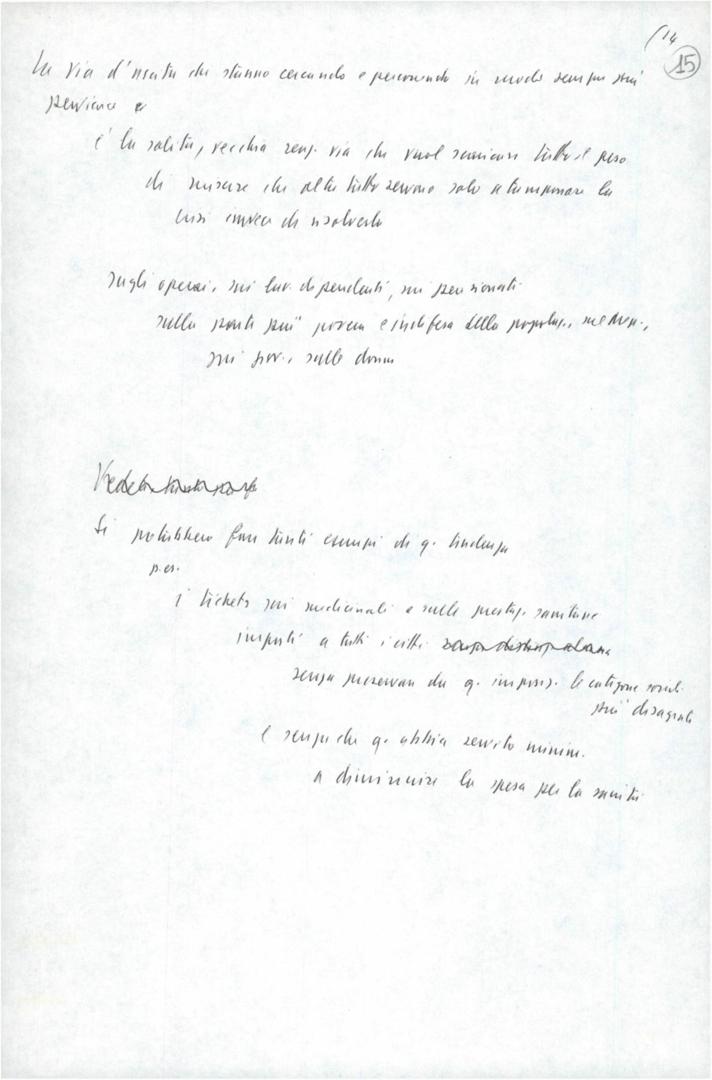 14
15
La via d'uscita che stanno cercando e percorrendo in modo sempre più
è la solita, vecchia via che vuol scaricare tutto il peso
di misure che oltre tutto servono solo a tamponare la
crisi invece di risolverla
sugli operai, sui lav. dipendenti, sui pensionati
sulla parte più povera e indifesa della popolaz.
sui giov., sulle donne
Si potrebbero fare tanti esempi di q. tendenza
p. es.
i tickets sui medicinali e sulle prestaz. sanitarie
imposti a tutti i citt.
senza preservare da q. imposiz. le categorie sociali
più disagiate
e senza che q. abbia servito minim.
a diminuire la spesa per la sanità